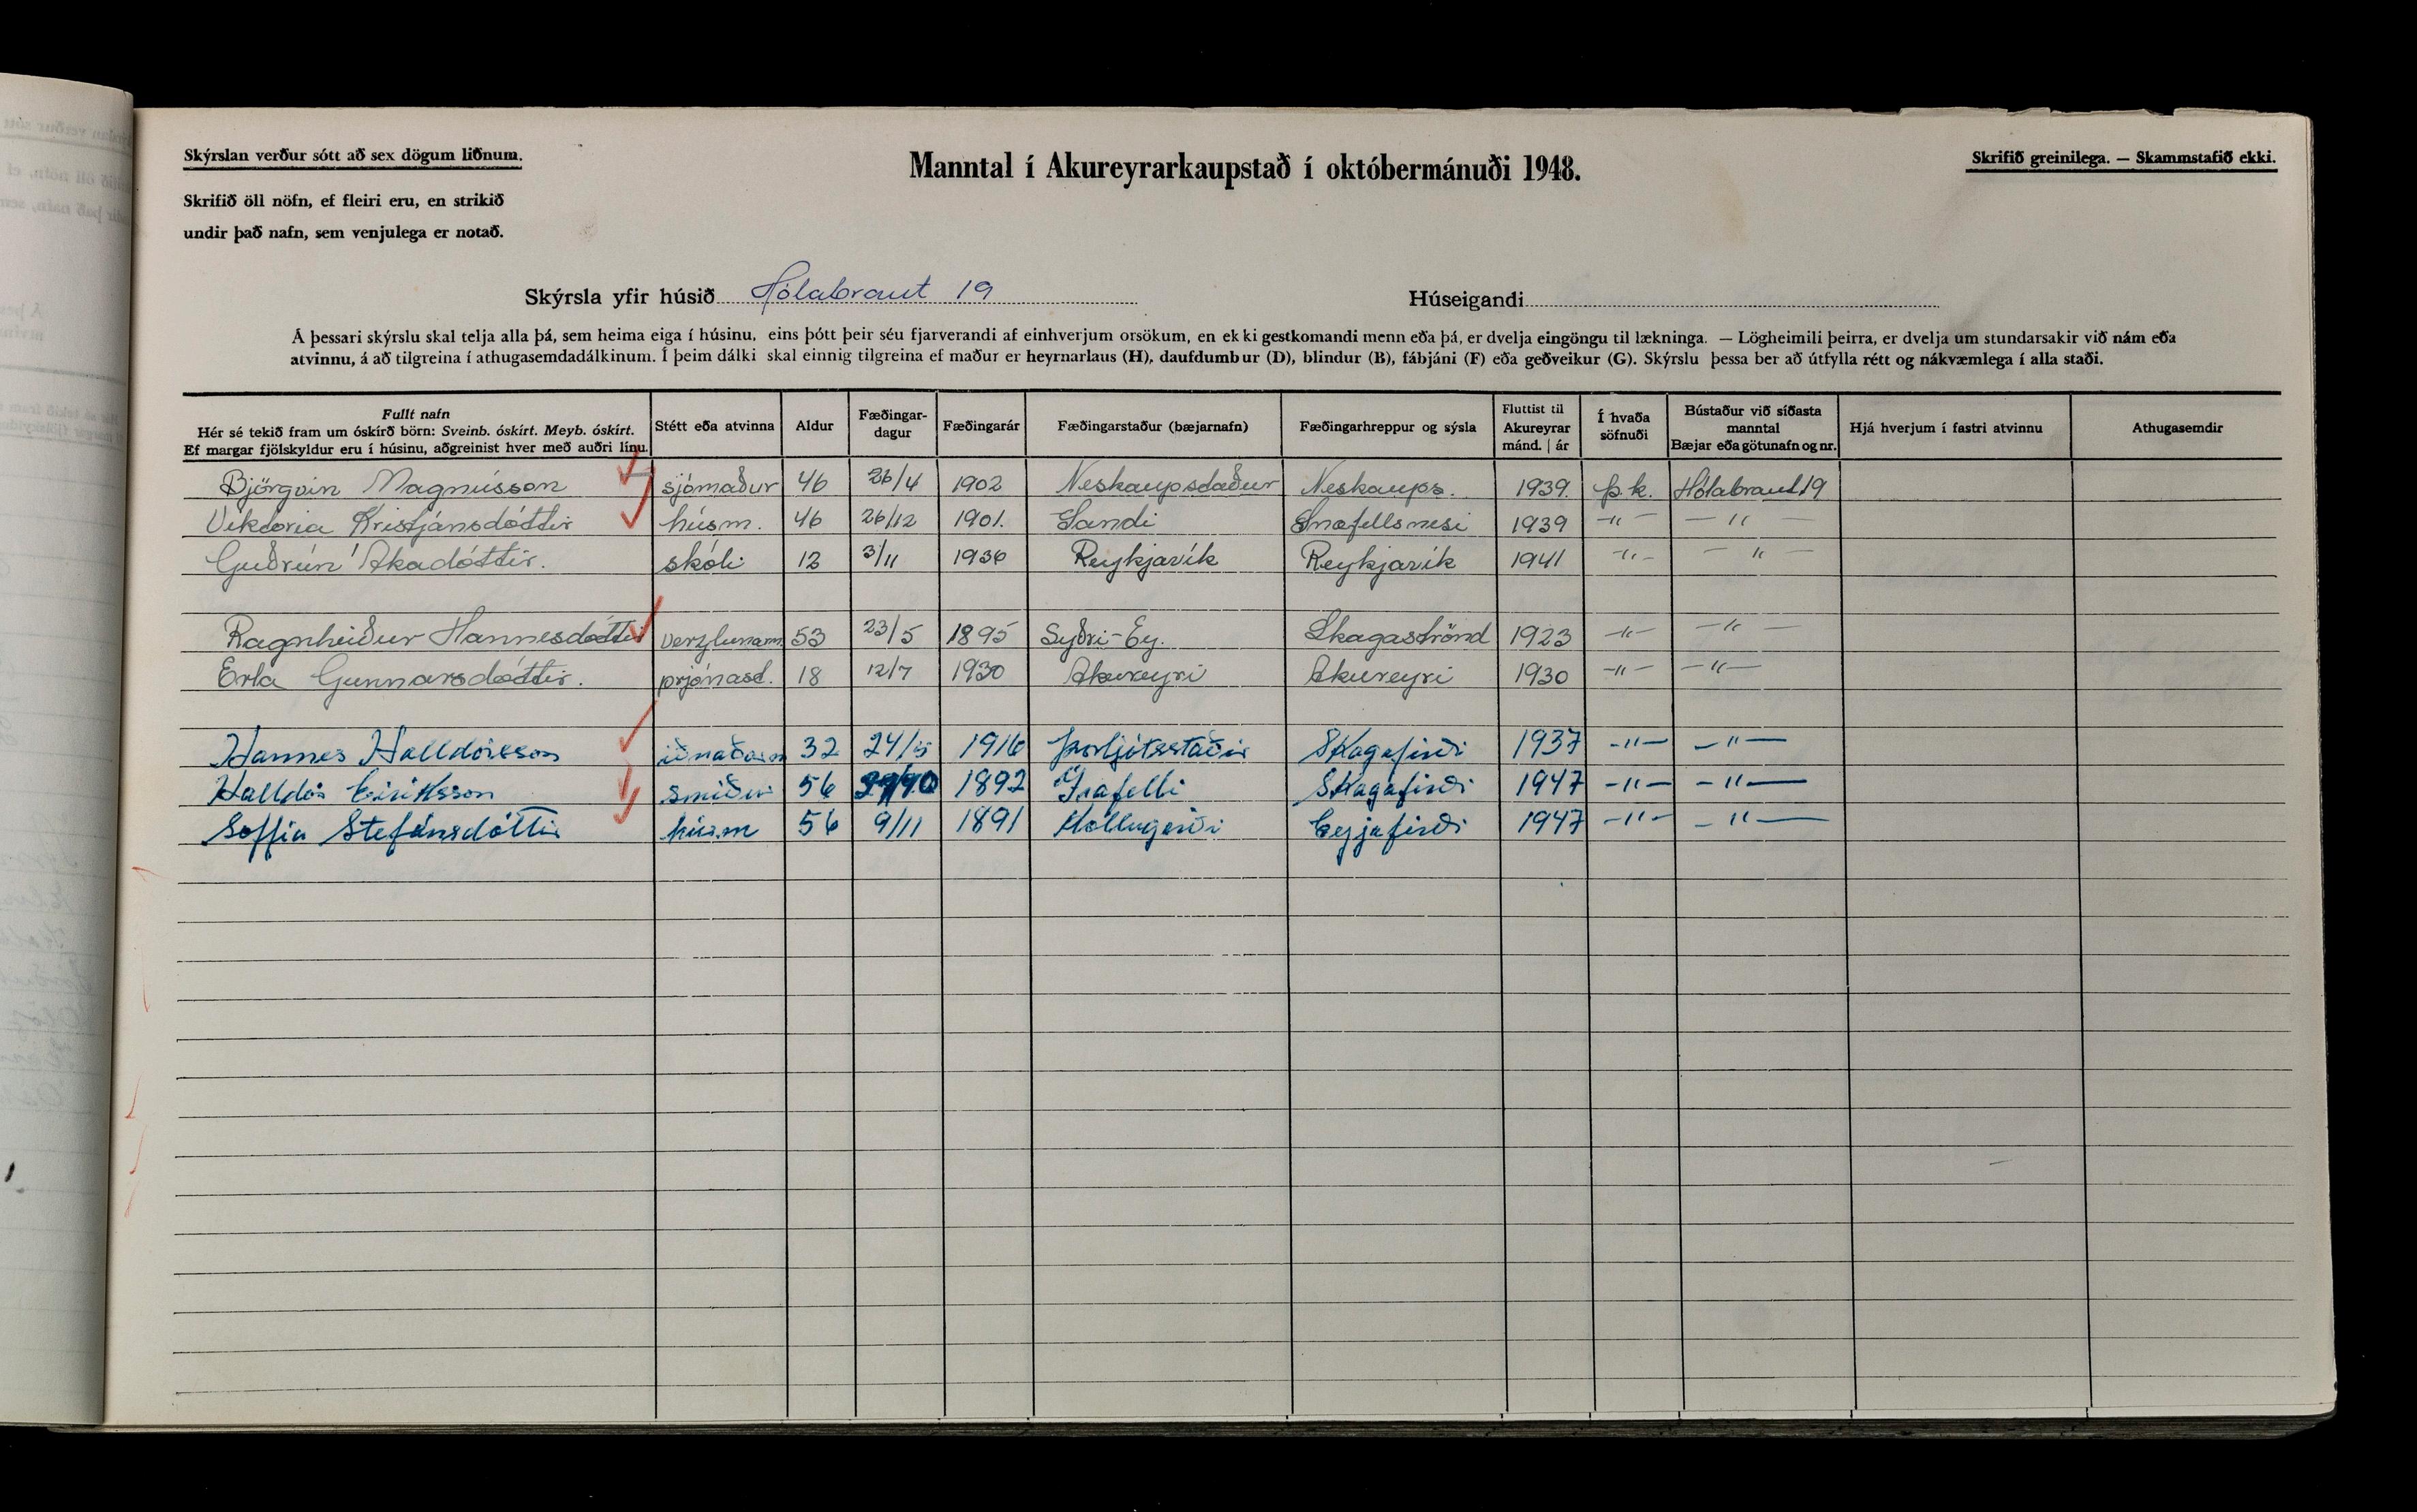 Skýrslan verður sótt að sex dögum liðnum.
Manntal í Akureyrarkaupstað í októbermánuði 1948.
Skrifið greinilega. — Skammstafið ekki.
Skrifið öll nöfn, ef fleiri eru, en strikið
undir það nafn, sem venjulega er notað.
Skýrsla yfir húsið Hólabraut 19 Húseigandi
Á þessari skýrslu skal telja alla þá, sem heima eiga í húsinu, eins þótt þeir séu fjarverandi af einhverjum orsökum, en ekki gestkomandi menn eða þá, er dvelja eingöngu til lækninga. — Lögheimili þeirra, er dvelja um stundarsakir við nám eða
atvinnu, á að tilgreina í athugasemdadálkinum. Í þeim dálki skal einnig tilgreina ef maður er heyrnarlaus (H), daufdumbur (D), blindur (B), fábjáni (F) eða geðveikur (G). Skýrslu þessa ber að útfylla rétt og nákvæmlega í alla staði.
Fullt nafn
Hér sé tekið fram um óskírð börn: Sveinb. óskírt. Meyb. óskírt.
Ef margar fjölskyldur eru í húsinu, aðgreinist hver með auðri línu.
Stétt eða atvinna
Aldur
Fæðingar-
dagur
Fæðingarár
Fæðingarstaður (bæjarnafn)
Fæðingarhreppur og sýsla
Fluttist til
Akureyrar
mánd. | ár
Í hvaða
söfnuði
Bústaður við síðasta
manntal
Bæjar eða götunafn og nr.
Hjá hverjum í fastri atvinnu
Athugasemdir
Björgvin Magnússon sjómaður 46 26/4 1902 Neskaupsdaður Neskaups. 1939. þ.k. Hólabraut 19
Viktoria Kristjánsdóttir húsm. 46 26/12 1901. Sandi Snæfellsnesi 1939 -"- -"-
Guðrún Ákadóttir. skóli 12 3/11 1936 Reykjavík Reykjavík 1941 -"- -"-
Ragnheiður Hannesdóttir verzlunarm 53 23/5 1895 Syðri-Ey. Skagaströnd 1923 -"- -"-
Erla Gunnarsdóttir. prjónast. 18 12/7 1930 Akureyri Akureyri 1930 -"- -"-
Hannes Halldórsson iðnaðarm 32 24/ 1916 Þorljótsstaðir Skagafirði 1937 -"- -"-
Halldór Eiríksson smiður 56 1892 Skagafirði 1947 -"- -"-
Soffía Stefánsdóttir húsm 56 9/11 1891 Eyjafirði 1947 -"- -"-